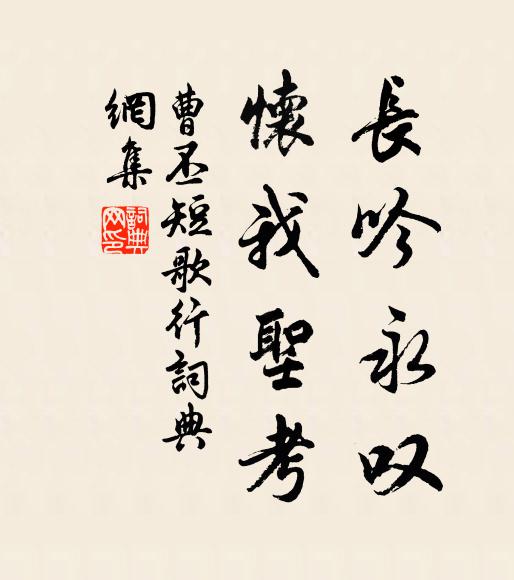 長吟永叹
懷我聖考
曹丕短歌行詞典
網集
詞典
网印